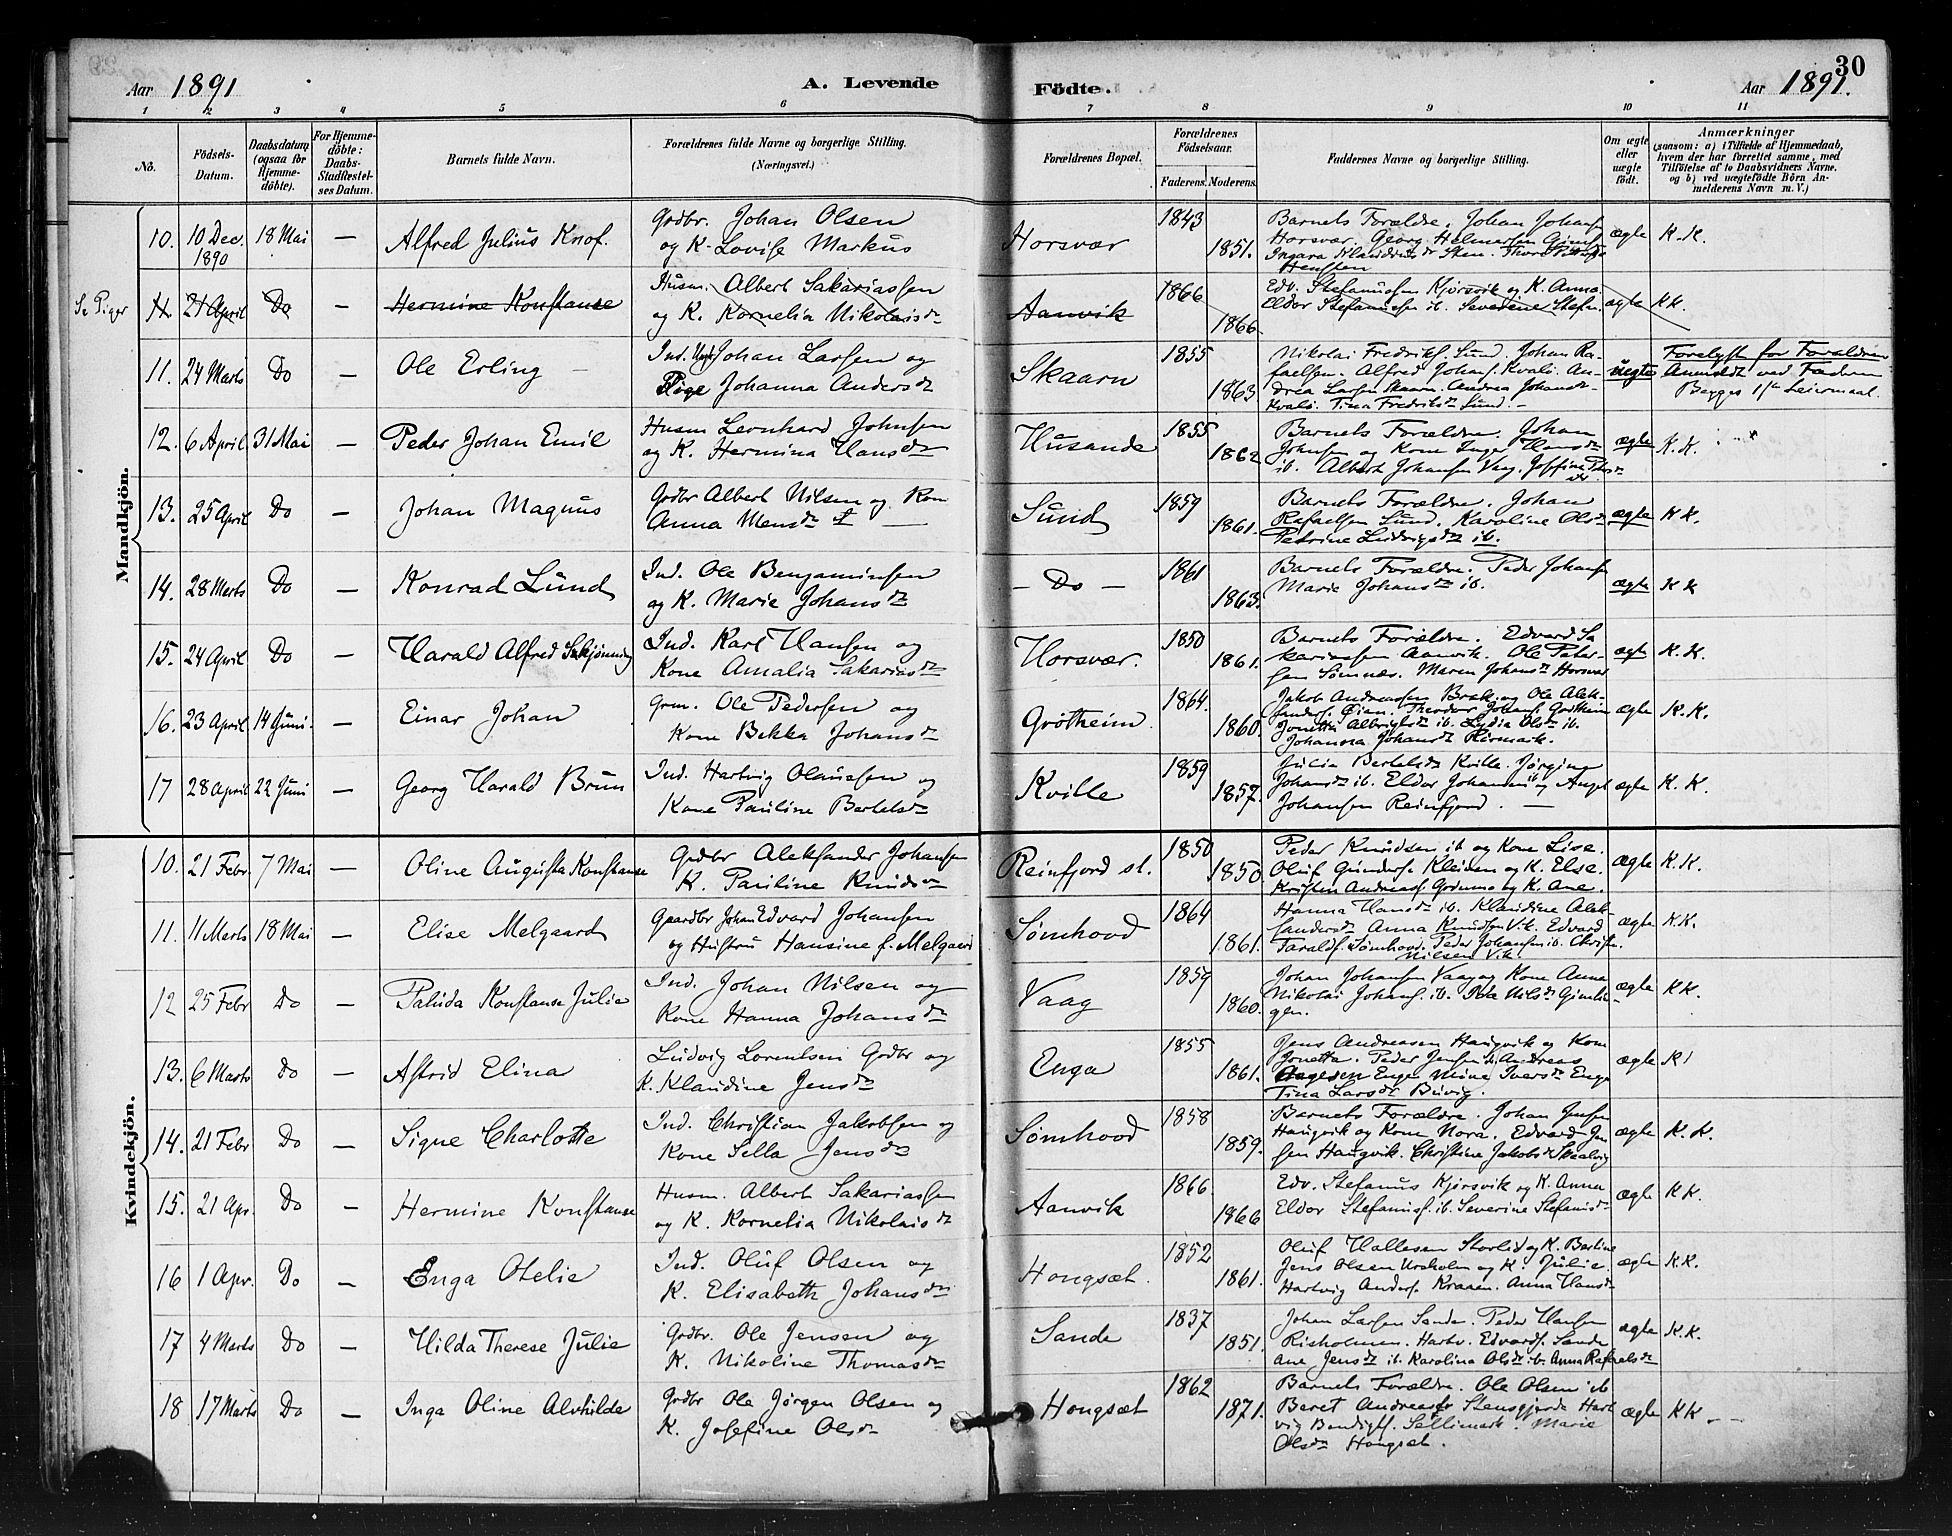 30
Aar 1891
A. Levende Födte.
Aar 1891.
1 2 3 4 5 6 7 8 9 10 11
No.
Födsels-Datum.
Daabsdatum (ogsaa for Hjemmedöbte).
For Hjemmedöbte: Daabs-Stadfestelses Datum.
Barnets fulde Navn.
Forældrenes fulde Navne og borgerlige Stilling.
(Næringsvei.)
Forældrenes Bopæl.
Forældrenes Födselsaar.
Faderens. Moderens.
Faddernes Navne og borgerlige Stilling.
Om ægte eller uægte født.
Anmærkninger
(saasom: a) i Tilfælde af Hjemmedaab,
hvem der har forrettet samme, med
Tilföielse af to Daabsvidners Navne,
og b) ved uægtefödte Börn An-
melderens Navn m. V.)
Mandkjön.
10. 10 Dec. 1890 18 Mai — Alfred Julius Knof.
Grdbr. Johan Olsen
og K. Lovise Markus
Horsvær 1843 1851.
Barnets Forældre. Johan Johans.
Horsvær. Georg Helmersen
ægte K.K.
Se Piger
11. 21 April Do — Hermine Konstanse
Husm. Albert Sakariassen
og K. Kornelia Nikolaisdr
Aanvik 1866 1866
Edv. Stefanussen Kjörsvik og K. Anna.
Eldor Stefanussen ib. Severine Stefan.
ægte K.K.
11. 24 Marts Do — Ole Erling
Ind. Ungk. Johan Larsen og
Pige Johanna Andersdr
Skaarn 1855 1863
Nikolai Fredriks. Sund. Johan Ra-
faelsen. Alfred Johans. Kvalö. An-
drea Larsen Skaarn. Andrea Johansdr
Kvalö. Tina Fredriksdr Sund. —
uægte
Forelyst for Forældren
Anmeldt ved Faderen
Begges 1ste Leiermaal.
12. 6 April 31 Mai — Peder Johan Emil
Husm Leonhard Johnsen
og K. Hermina Hansdr
Husande 1855 1862
Barnets Forældre. Johan
Johnsen og Kone Inger Hansdr
ib. Albert Johansen Vaag.
ægte K.K.
13. 25 April Do — Johan Magnus
Grdbr Albert Nilsen og Kone
Anna Monsdr
Sund 1859 1861.
Barnets Forældre. Johan
Rafaelsen Sund. Karoline Olsdr
Petrine Ludvigsdr ib.
ægte K.K.
14. 28 Marts Do — Konrad Lund
Ind. Ole Benjaminsen
og K. Marie Johansdr
— Do — 1861 1863.
Barnets Forældre. Peder Johansen
Marie Johansdr ib.
ægte K K
15. 24 April Do — Harald Alfred
Ind. Karl Hansen og
Kone Amalia Sakariasdr
Horsvær. 1850 1861.
Barnets Forældre. Edvard Sa
kariassen Aanvik. Ole Peter-
sen Sömnæs. Maren Johansdr Horsvær
ægte K.K.
16. 23 April 14 Juni. — Einar Johan
Grm. Ole Pedersen og
Kone Bekka Johansdr
Grötheim 1864. 1860.
Jakob Andreassen Bræk. og Ole Alek-
sanders. Öien. Theodor Johans. Grötheim
Jonetta Albrigtsdr ib. Lydia Olsdr ib.
Johanna Johansdr
ægte K.K.
17 28 April 22 Juni — Georg Harald Brun
Ind. Hartvig Olaussen og
Kone Pauline Bertelsdr
Kville 1859 1857.
Julia Bertelsdr Kville. Jörgine
Johansdr ib. Eldor Johansen ib og Angel
Johansen Reinfjord. —
ægte K.K.
Kvindekjön.
10. 21 Febr. 7 Mai — Oline Augusta Konstanse
Grdbr Aleksander Johansen
K. Pauline Knudsdr
Reinfjord st. 1850 1850.
Peder Knudsen ib og Kone Lise.
Oluf Gunders. Kleiven og K. Else.
Kristen Andreass. og K. Ane.
ægte K.K.
11. 11 Marts 18 Mai — Elise Melgaard
Gaardbr Johan Edvard Johansen
og Hustru Hansine f. Melgaard
Sömhovd 1864 1861.
Hanna Hansdr ib. Klaudine Alek-
sandersdr Anna Knudsen Vik. Edvard
Taralds. Sömhovd. Peder Johansen ib. Christ.
Nilsen Vik.
ægte K.K.
12 25 Febr Do — Palida Konstanse Julie
Ind. Johan Nilsen og
Kone Hanna Johansdr
Vaag 1859 1860.
Johan Johansen Vaag og Kone Anna
Nikolai Johans. ib.
ægte KK.
13. 6 Marts Do — Astrid Elina
Ludvig Lorentsen Grdbr og
K. Klaudine Jensdr
Enga 1855 1861.
Jens Andreasen Haugvik og Kone
Jonetta. Peder Jensen ib. Andreas
Aagesen Enge Mine Iversdr Enga
Tina Larsdr
ægte K
14. 21 Febr Do — Signe Charlotte
Ind. Christian Jakobsen og
Kone Sella Jensdr
Sömhovd 1858 1859.
Barnets Forældre. Johan Jensen
Haugvik og Kone Nora. Edvard Jen
sen Haugvik. Christine Jakobsdr
ægte K.K.
15. 21 Apr. Do — Hermine Konstanse
Husm. Albert Sakariassen
og K. Kornelia Nikolaisdr
Aanvik 1866. 1866
Edv. Stefanus Kjörsvik og K. Anna
Eldor Stefanuss. ib. Severine Stefansdr
ægte KK.
16 1 Apr. Do — Enga Otelie
Ind. Oluf Olsen og
K. Elisabeth Johansdr
Hongsæt. 1852 1861.
Oluf Hallesen Storlid og K. Bertine
Jens Olsen og K. Julie
Hartvig Anders. Kraaen. Anna Hansdr
ægte K.K.
17 4 Marts Do — Hilda Therese Julie
Grdbr. Ole Jensen og
K. Nikoline Thomasdr
Sande 1837 1851.
Johan Larsen Sande. Peder Hansen
Risholmen. Hartv. Edvards. Sande
Ane Jensdr ib. Karolina Olsdr ib. Anna Rafaelsdr
ægte K.K.
18 17 Marts Do — Inga Oline Alvhilde
Grdbr Ole Jörgen Olsen og
K. Josefine Olsdr
Hongsæt 1862 1871.
Barnets Forældre. Ole Olsen ib
Beret Andreasdr Stensgjerde Hart
vig Bendigts. Sellimark. Marie
Olsdr Hongsæt.
ægte K K